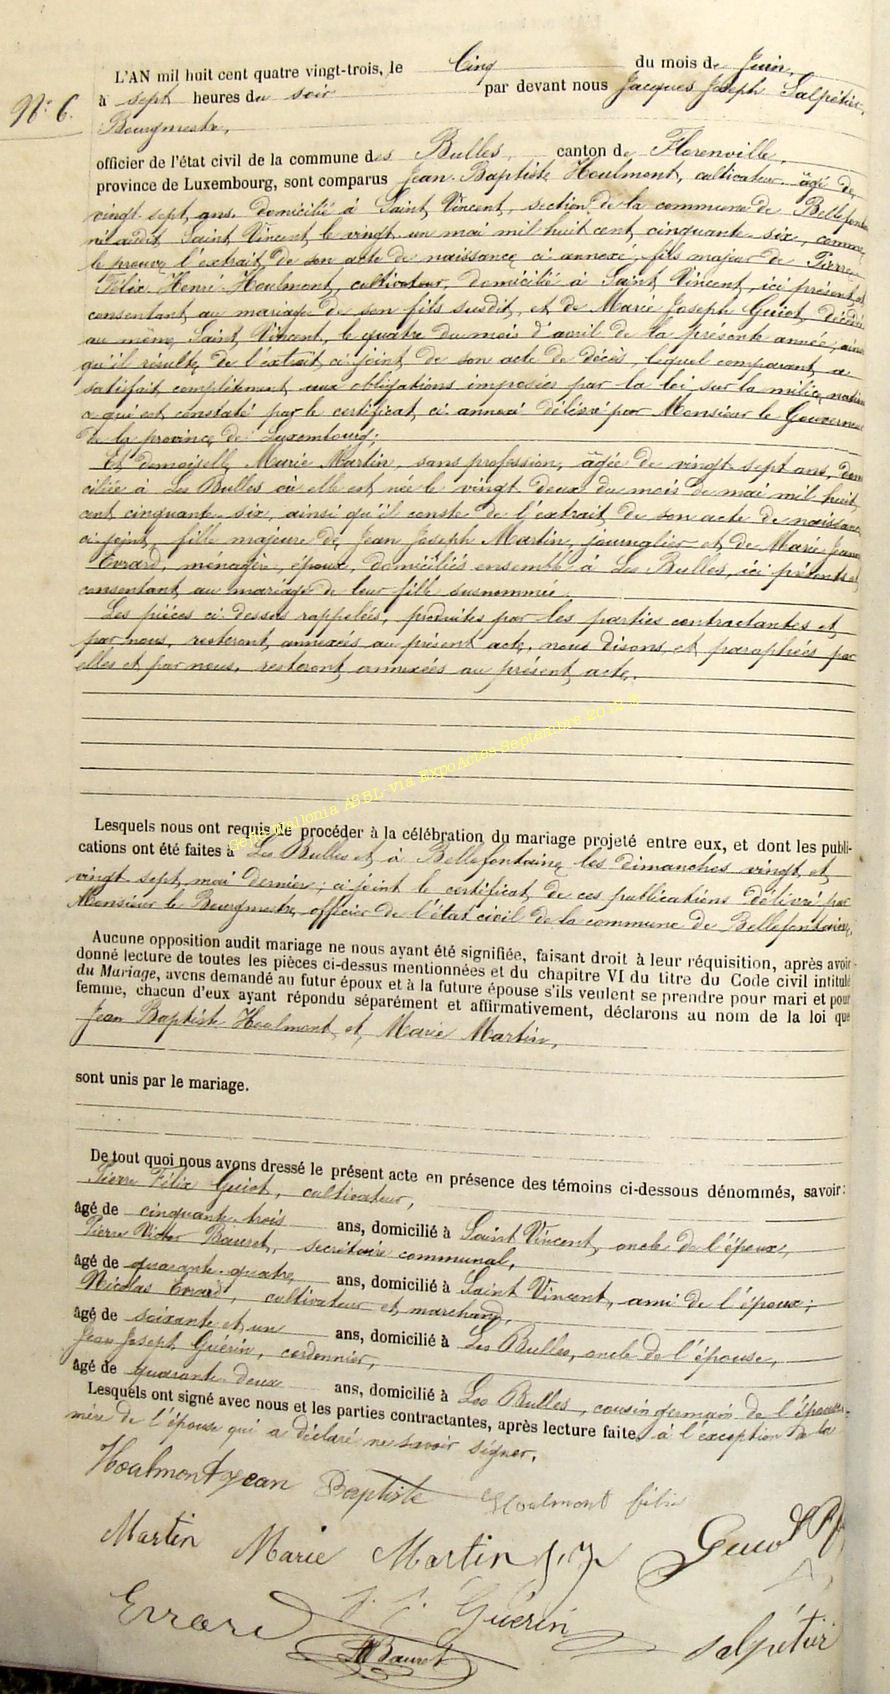 N° 6.
L'AN mil huit cent quatre vingt-trois, le Cinq du mois de Juin,
à sept heures du soir par devant nous Jacques Joseph Salpéteur,
Bourgmestre,
officier de l'état civil de la commune des Bulles, canton de Florenville,
province de Luxembourg, sont comparus Jean-Baptiste Houlmont, cultivateur, âgé de
vingt-sept ans, domicilié à Saint Vincent, section de la commune de Bellefontaine
né audit Saint Vincent le vingt-un mai mil huit cent cinquante-six, comme
le prouve l'extrait de son acte de naissance ci-annexé, fils majeur de Pierre
Félix Henri Houlmont, cultivateur, domicilié à Saint Vincent, ici présent et
consentant au mariage de son fils susdit, et de Marie Joseph Guiot, décédée
au même Saint Vincent, le quatre du mois d'avril de la présente année, ainsi
qu'il résulte de l'extrait ci-joint de son acte de décès, lequel comparant a
satisfait complètement aux obligations imposées par la loi sur la milice nationale
ce qui est constaté par le certificat ci-annexé délivré par Monsieur le Gouverneur
de la province de Luxembourg;
Et demoiselle Marie Martin, sans profession, âgée de vingt-sept ans, domi
ciliée à Les Bulles où elle est née le vingt-deux du mois de mai mil huit
cent cinquante-six, ainsi qu'il conste de l'extrait de son acte de naissance
ci-joint, fille majeure de Jean Joseph Martin, journalier et de Marie Jeanne
Evrard, ménagère, époux, domiciliés ensemble à Les Bulles, ici présents et
consentant au mariage de leur fille susnommée.
Les pièces ci-dessus rappelées, produites par les parties contractantes et
par nous, resteront annexées au présent acte, nous disons et paraphées par
elles et par nous, resteront annexées au présent acte.
Geneawallonia ASBL via ExpoActes Septembre 20
Lesquels nous ont requis de procéder à la célébration du mariage projeté entre eux, et dont les publi-
cations ont été faites à Les Bulles et à Bellefontaine les dimanches vingt et
vingt-sept mai dernier; ci-joint le certificat de ces publications délivré par
Monsieur le Bourgmestre, officier de l'état civil de la commune de Bellefontaine,
Aucune opposition audit mariage ne nous ayant été signifiée, faisant droit à leur réquisition, après avoir
donné lecture de toutes les pièces ci-dessus mentionnées et du chapitre VI du titre du Code civil intitulé
du Mariage, avons demandé au futur époux et à la future épouse s'ils veulent se prendre pour mari et pour
femme, chacun d'eux ayant répondu séparément et affirmativement, déclarons au nom de la loi que
Jean Baptiste Houlmont et Marie Martin,
sont unis par le mariage.
De tout quoi nous avons dressé le présent acte en présence des témoins ci-dessous dénommés, savoir:
Pierre Félix Guiot, cultivateur,
âgé de cinquante-trois ans, domicilié à Saint Vincent, oncle de l'époux,
Pierre Victor Bauret, secrétaire communal,
âgé de quarante-quatre ans, domicilié à Saint Vincent, ami de l'époux;
Nicolas Evrard, cultivateur et marchand,
âgé de soixante et un ans, domicilié à Les Bulles, oncle de l'épouse,
Jean Joseph Guérin, cordonnier,
âgé de quarante-deux ans, domicilié à Les Bulles, cousin germain de l'épouse.
Lesquels ont signé avec nous et les parties contractantes, après lecture faite, à l'exception de la
mère de l'épouse qui a déclaré ne savoir signer.
Houlmont Jean Baptiste Houlmont félix
Martin Marie Martin J. J. Guiot
Evrard J. J. Guérin
Bauret Salpéteur